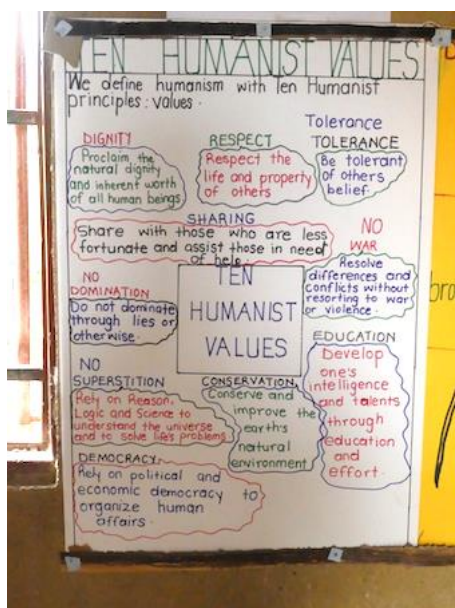 TEN HUMANIST VALUES
We define humanism with Ten Humanist
principles: values.
DIGNITY
Proclaim the
natural dignity
and inherent worth
of all human beings
RESPECT
Respect the
life and property
of others
Tolerance
TOLERANCE
Be tolerant
of others
belief.
SHARING
Share with those who are less
fortunate and assist those in need
of help.
NO
WAR
Resolve
differences and
conflicts without
resorting to war
or violence.
NO
DOMINATION
Do not dominate
through lies or
otherwise.
TEN
HUMANIST
VALUES
EDUCATION
Develop
one's
intelligence
and talents
through
education
and
effort.
NO
SUPERSTITION
Rely on Reason,
Logic and Science to
understand the universe
and to solve life's problems.
CONSERVATION.
Conserve and
improve the
earth's
natural
environment
DEMOCRACY:
Rely on political and
economic democracy to
organize human
affairs.